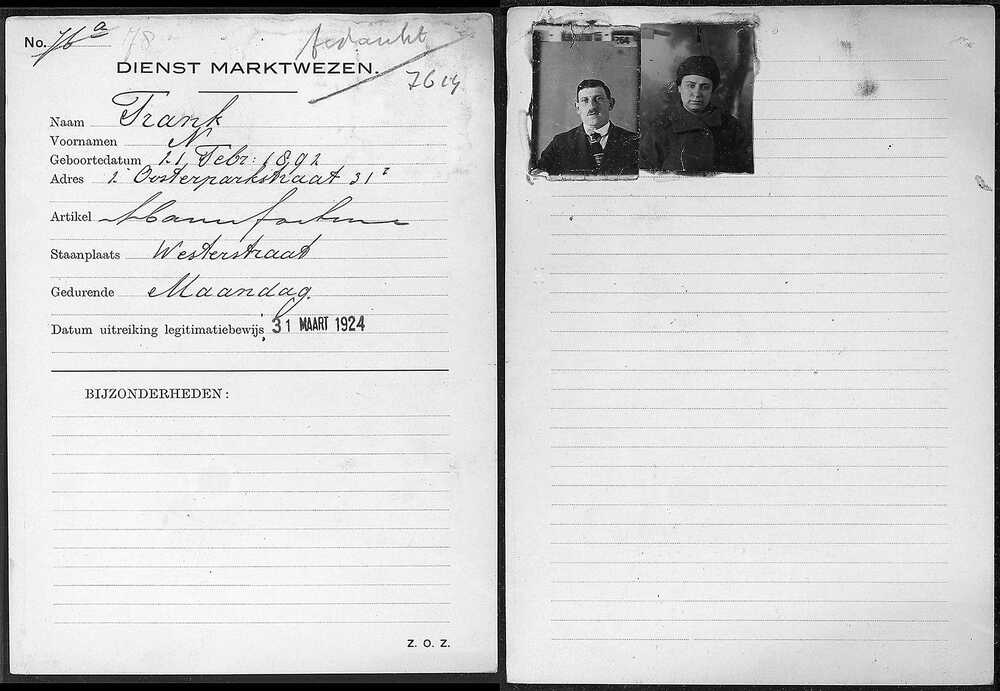 No. 76a 78
bedankt
DIENST MARKTWEZEN.
Naam Frank
Voornamen N
Geboortedatum 21 Febr: 1892
Adres 2e Oosterparkstraat 31
Artikel Manufacturen
Staanplaats Westerstraat
Gedurende Maandag
Datum uitreiking legitimatiebewijs 31 MAART 1924
BIJZONDERHEDEN:
Z. O. Z.